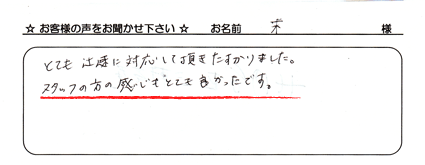 ☆ お客様の声をお聞かせ下さい ☆ お名前 様
とても 迅速に 対応して頂きたすかりました。
スタッフの方の感じもとても良かったです。